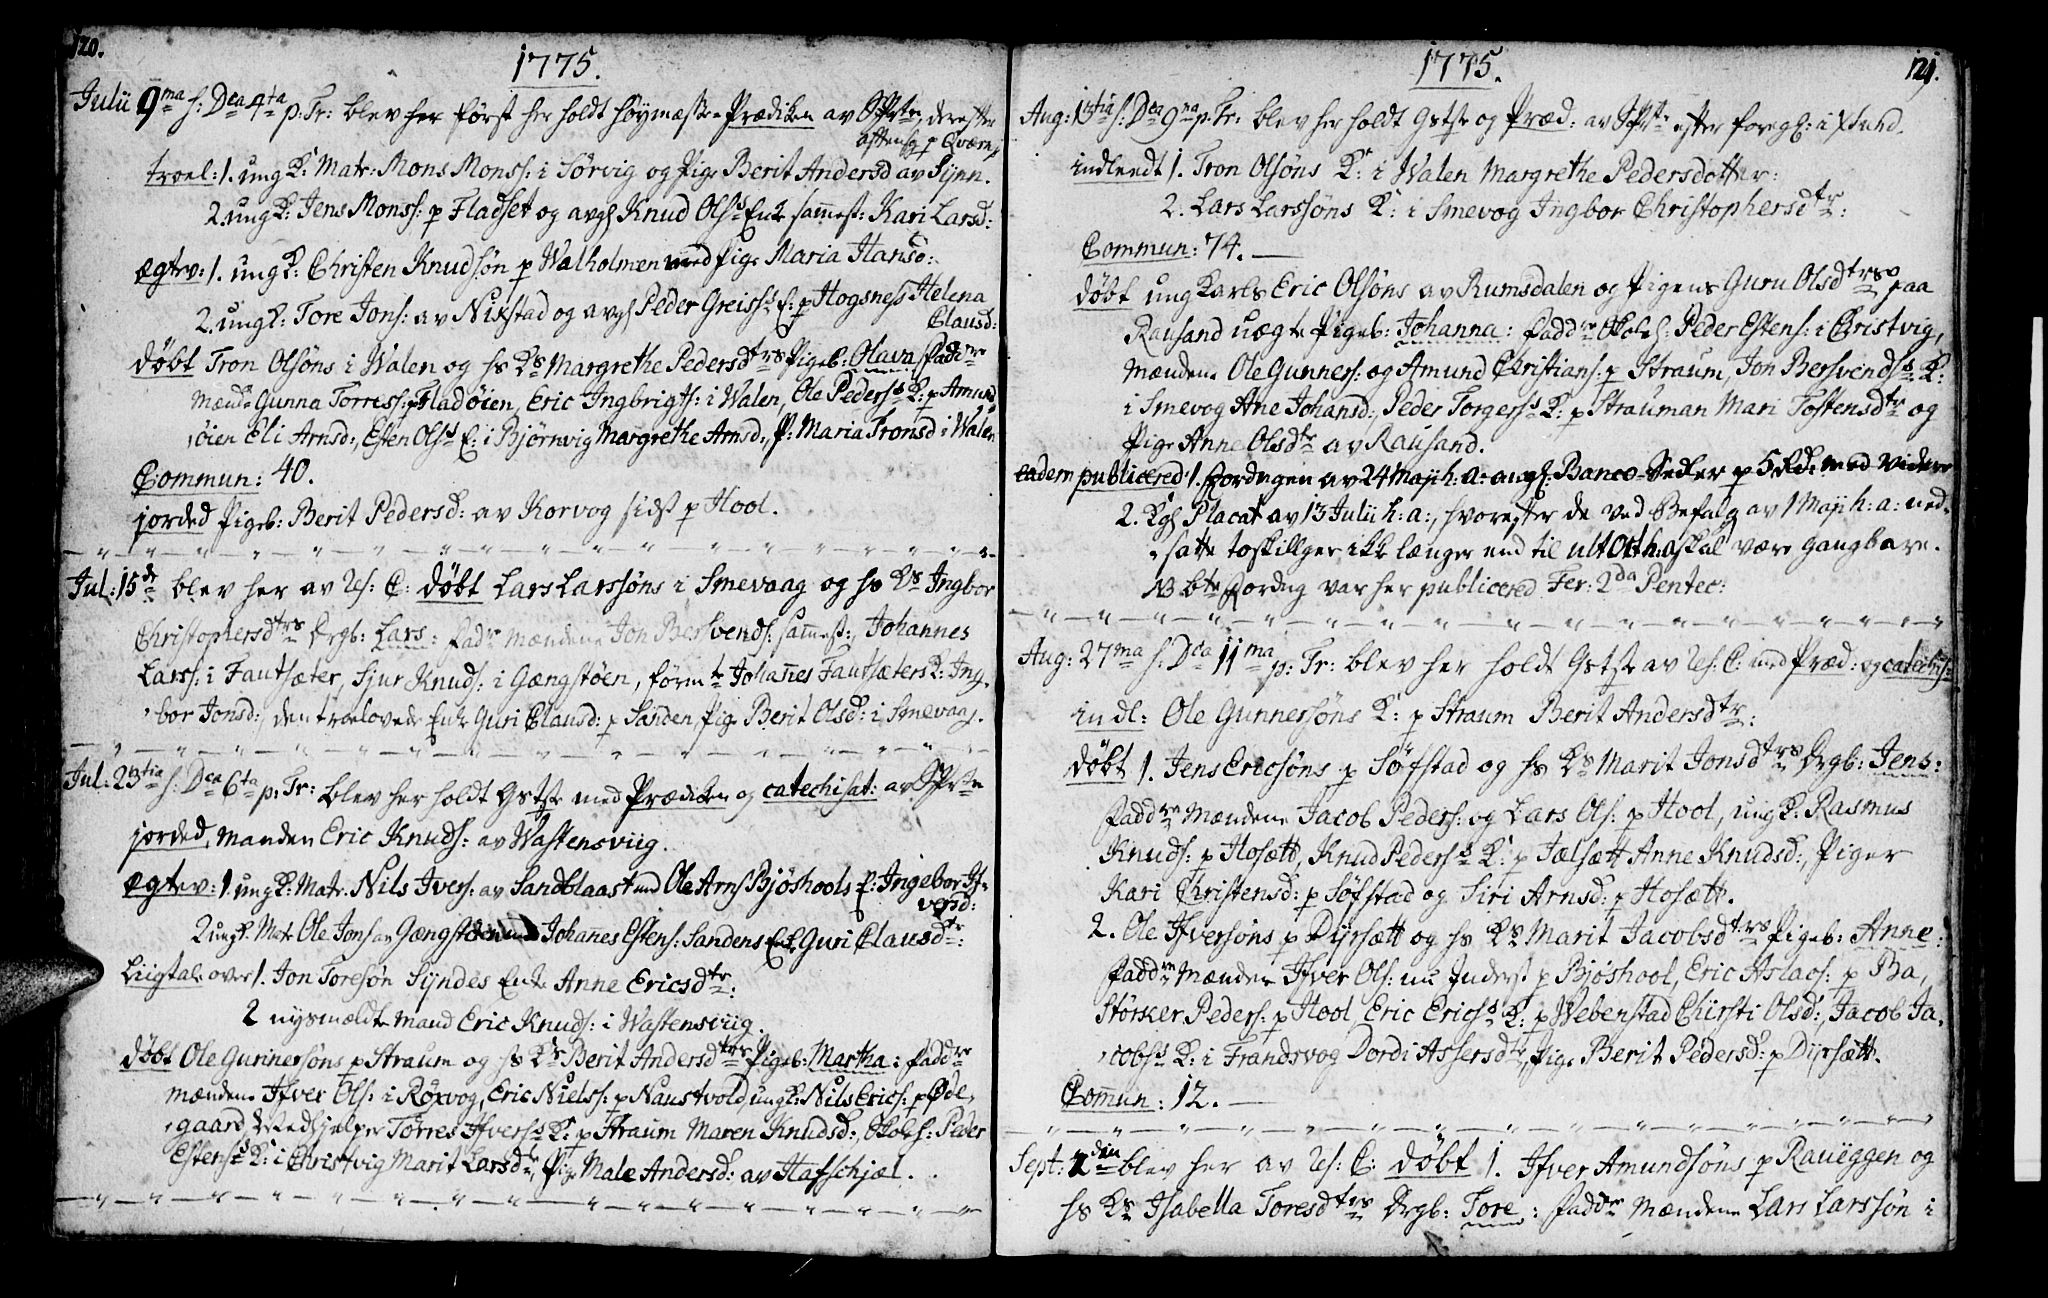 120.
1775.
Julii 9ma s: Dca 4ta p: Tr: blev her först her holdt Höymæsse Prædiken av SPrte, derefter
aftensg p Qværnes
troel: 1. ung K: Matr: Mons Mons: i Sörvig og Pige Berit Andersd av Synn.
2. ung K: Jens Mons: p Fladset og avg Knud Olss Enke samest: Kari Larsd:
ægtev: 1. ung K: Christen Knudsön p Walholmen med Pige Maria Hansd:
2. ung K: Tore Jons: av Nixstad og avg Peder Greiss E: p Hogsness Helena
Clausd:
döbt Tron Olsöns i Walen og hs Ks Margrethe Pedersdtrs Pigeb: Olava: faddre
Mænde Gunna Torress: p Fladöien, Eric Ingbrigts: i Walen, Ole Pederss K: p Amund-
öien Eli Arnsd:, Esten Olss E: i Björnvig Margrethe Arnsd:, P: Maria Tronsd i Walen
Commun: 40.
jorded Pigeb: Berit Pedersd: av Korvog sidst p Hool.
Jul: 15de blev her av Res: C: döbt Lars Larssöns i Smevaag og hs Ks Ingbor
Christophersdtrs Drgb: Lars: fadr Mændene Jon Bersvends: samest:, Johannes
Lars: i Fautsæter, Sjur Knuds: i Gængstöen, förmte Johanes Fautsæters K: Ing-
bor Jonsd:, den troelovede Enke Guri Clausd: p Sanden, Pige Berit Olsd: i Smevaag.
Jul: 23tia s: Dca 6ta p: Tr: blev her holdt Gstste med Prædiken og catechisat: av SPrte
jorded, Manden Eric Knuds: av Wastensviig.
ægtev: 1. ung K: Matr. Nils Ivers: av Sandblaast med Ole Arns Bjöshools E: Ingebor If-
versd:
2 ung K: Matr Ole Jons av Gængstöen med Johanes Estens: Sandens Enke Guri Clausdtr:
Liigtale over 1. Jon Toresön Syndes Enke Anne Ericsdtr:
2 nysmældte Mand Eric Knuds: i Wastensviig.
döbt Ole Gunnersöns p Straum og hs Ks Berit Andersdtrs Pigeb: Martha: faddre
Mændene Ifver Ols: i Röxvog, Eric Niels: p Naustvold, ung K: Nils Erics: p Öde-
gaard, Medhjelper Torres Iverss K: p Straum Maren Knudsd:, Skoleh: Peder
Estenss K: i Christvig Marit Larsdtr, Pige Male Andersd: av Hafschjæl.
121.
1775.
Aug: 13tia s: Dca 9na p: Tr: blev her holdt Gstste og Præd: av SPrte efter foreg: i Xsund.
indleedt 1. Tron Olsöns K: i Walen Margrethe Pedersdotter:
2. Lars Larssöns K: i Smevog Ingbor Christophersdtr:
Commun: 74.
döbt ung Karls Eric Olsöns av Rumsdalen og Pigens Guru Olsdtrs paa
Rausand uægte Pigeb: Johanna: faddre Skoleh: Peder Estens: i Christvig,
Mændene Ole Gunners: og Amund Christians: p Straum, Jon Bersvendss K:
i Smevog Ane Johansd:, Peder Torgerss K: p Strauman Mari Tostensdtr og
Pige Anne Olsdtr av Rausand.
eadem publicered: 1. Fordngen av 24 Maji h: a: ang: Banco-Sedler p 5 Rd: med videre
2. Kgl Placat av 13 Julii h: a:, hvorefter de ved Befalg av 1 Maji h: a: ned-
satte toskillger ikke længer end til ult Octh: a skal være gangbare.
NB bte Fordng var her publicered Fer: 2da Pentec:
Aug: 27ma s: Dca 11ma p: Tr: blev her holdt Gstste av Res: C: med Præd: og catechis:
indl: Ole Gunnersöns K: p Straum Berit Andersdtr:
döbt 1. Jens Ericsöns p Söfstad og hs Ks Marit Jonsdtrs Drgb: Jens:
Faddre Mændene Jacob Peders: og Lars Ols: p Hool, ung K: Rasmus
Knuds: p Hosætt, Knud Pederss K: p Jælsætt Anne Knudsd:, Piger
Kari Christensd: p Söfstad og Siri Arnsd: p Hosætt.
2. Ole Ifversöns p Dyrsætt og hs Ks Marit Jacobsdtrs Pigeb: Anne:
Faddre Mændene Ifver Ols: nu Inderst p Bjöshool, Eric Aslaos: p Ba,
Störker Peders: p Hool, Eric Ericss K: p Webenstad Chirsti Olsd:, Jacob Ja-
cobss K: i Frandsvog Dordi Assersdtr, Pige Berit Pedersd: p Dyrsætt.
Comun: 12.
Sept: 2den blev her av Res: C: döbt 1. Ifver Amundsöns p Raueggen og
hs Ks Isabella Toresdtrs Drgb: Tore: faddre Mændene Lars Larssön i